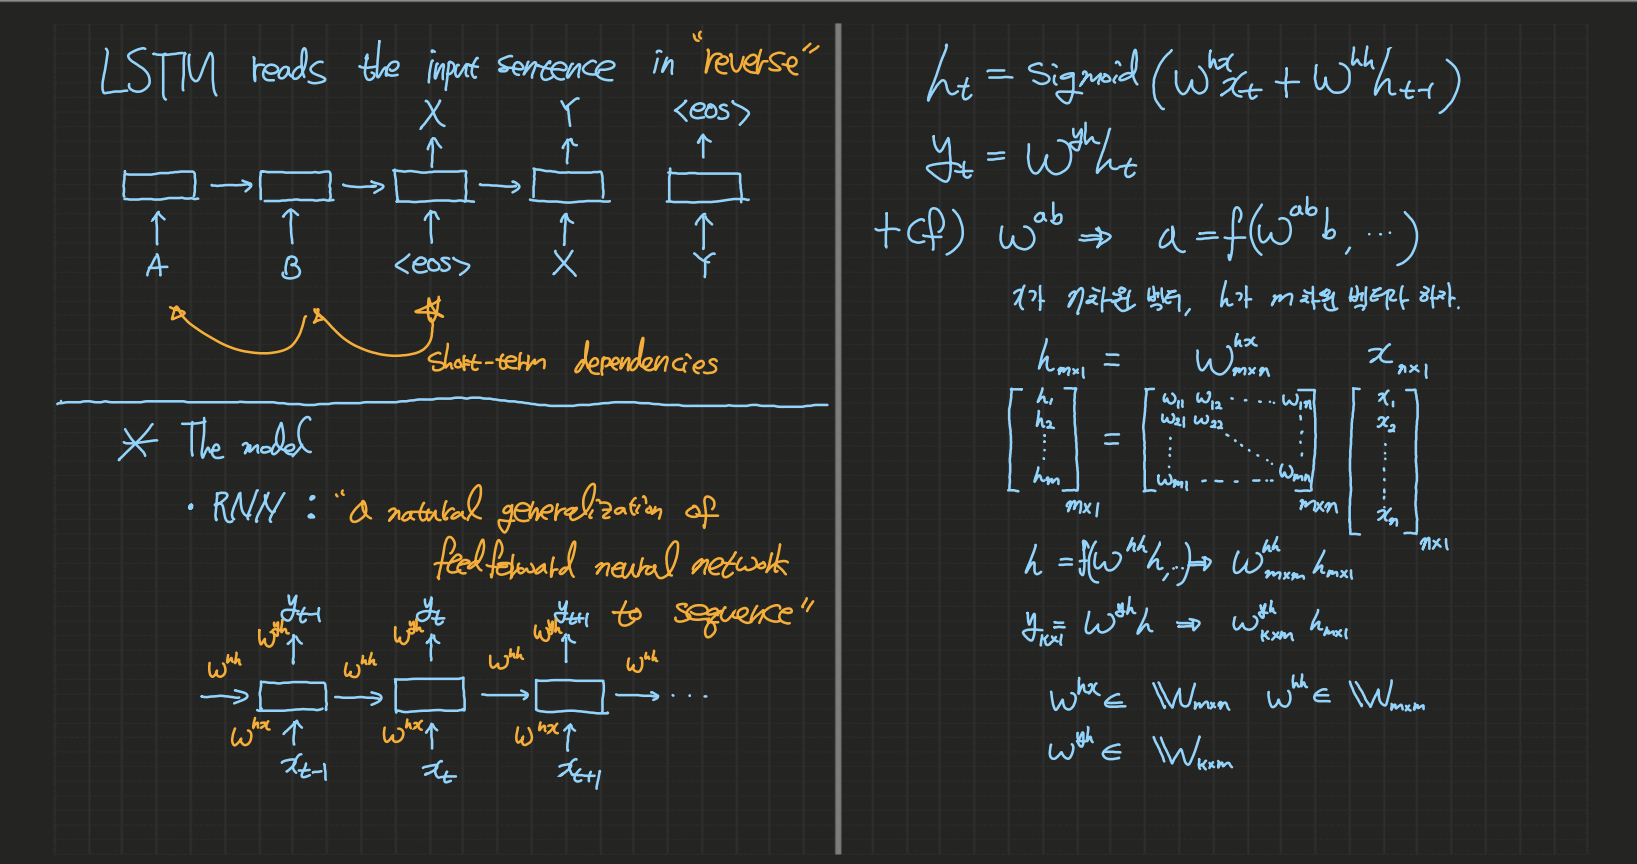 LSTM reads the input sentence in "reverse"
X Y <eos>
A B <eos> X Y
short-term dependencies
* The model
· RNN : "a natural generalization of
feedforward neural network
to sequence"
y_{t-1} y_t y_{t+1}
w^{yh} w^{yh} w^{yh}
w^{hh} w^{hh} w^{hh} w^{hh}
· · ·
w^{hx} w^{hx} w^{hx}
x_{t-1} x_t x_{t+1}
h_t = sigmoid (w^{hx} x_t + w^{hh} h_{t-1})
y_t = w^{yh} h_t
+cf) w^{ab} ⇒ a = f(w^{ab} b, ...)
x가 n차원 벡터, h가 m차원 벡터라 하자.
h_{m×1} = w^{hx}_{m×n} x_{n×1}
h_1 w_{11} w_{12} ..... w_{1n} x_1
h_2 w_{21} w_{22} x_2
=
h_m w_{m1} ------ w_{mn}
x_n
m×1 m×n n×1
h = f(w^{hh} h, ...) ⇒ w^{hh}_{m×m} h_{m×1}
y_{k×1} = w^{yh} h ⇒ w^{yh}_{k×m} h_{m×1}
w^{hx} ∈ 𝕎_{m×n} w^{hh} ∈ 𝕎_{m×m}
w^{yh} ∈ 𝕎_{k×m}